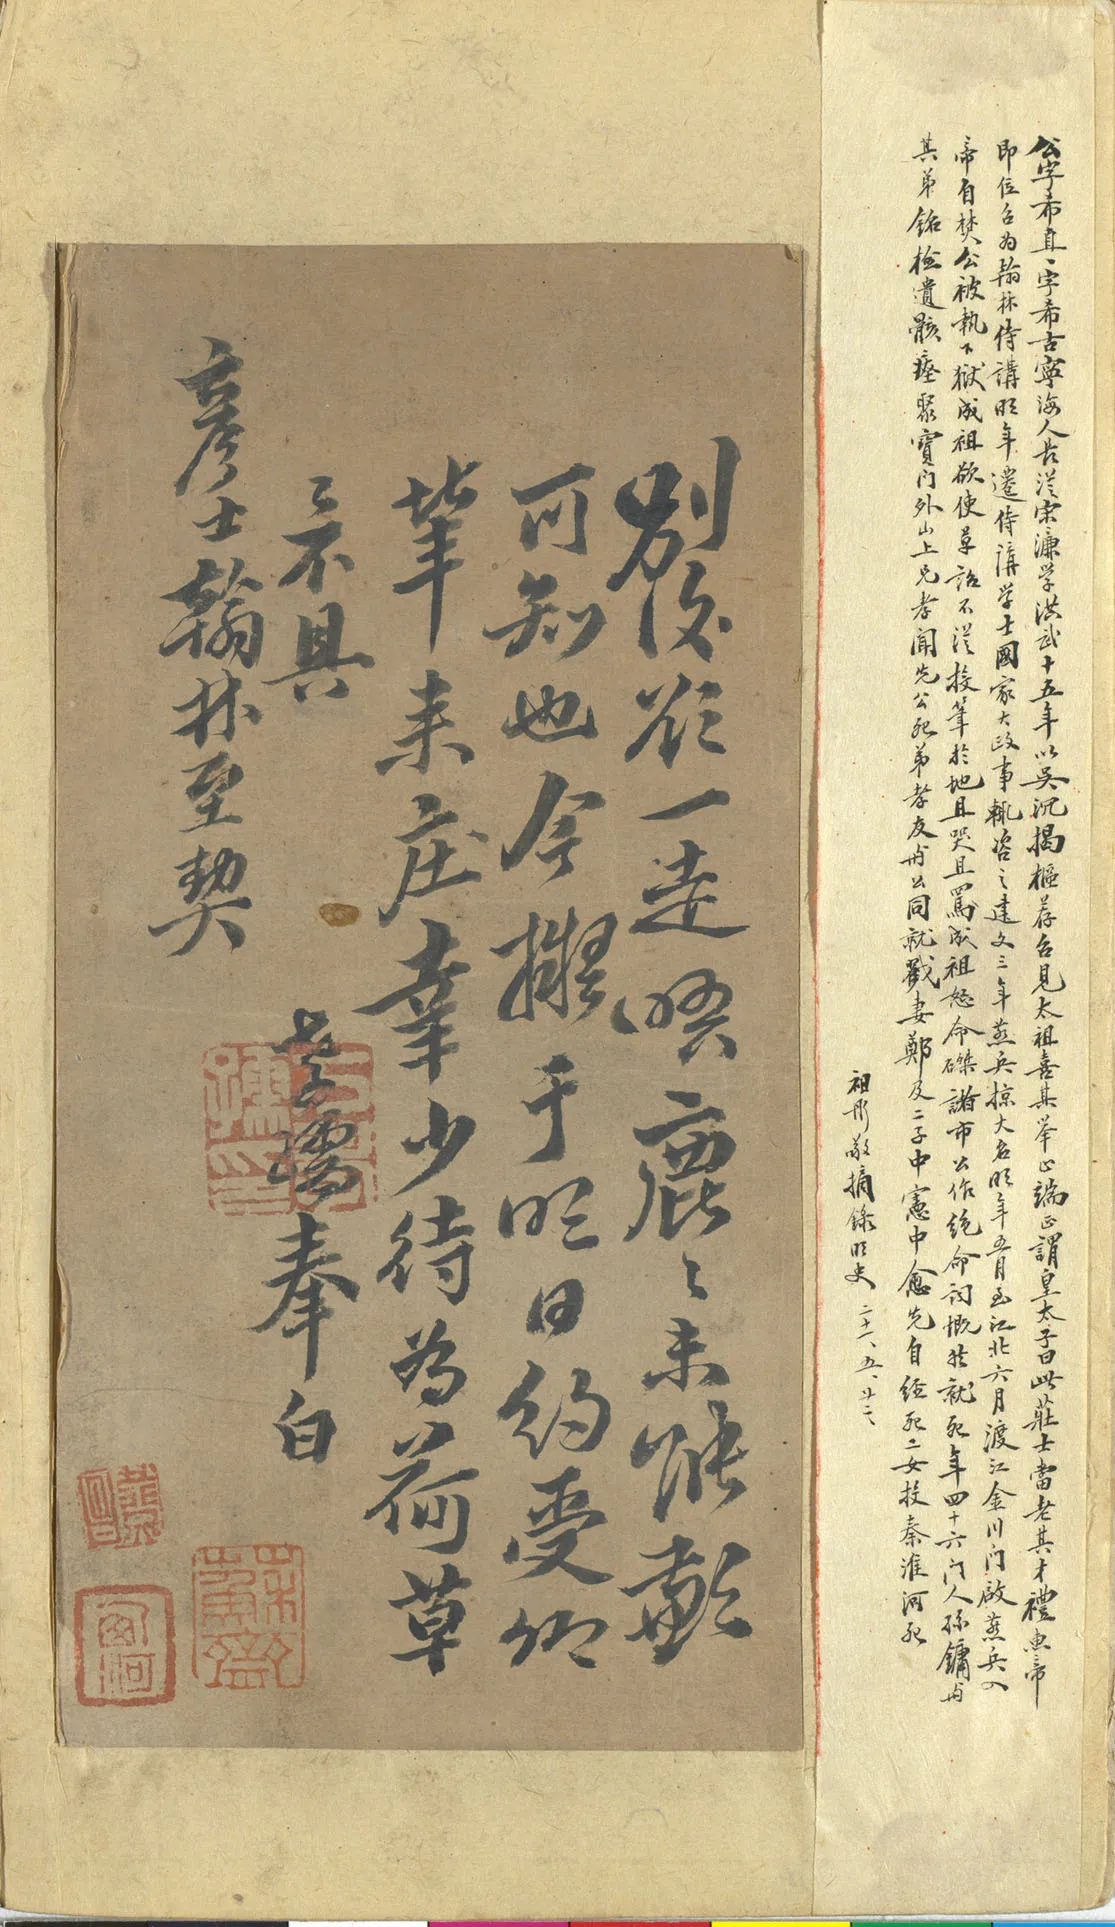 公字希直一字希古寧海人長從宋濂學洪武十五年以吳沉揭樞荐召見太祖喜其舉止端正謂皇太子曰此莊士當老其才禮惠帝
即位召为翰林侍講明年遷侍講学士國家大政事輒咨之建文三年燕兵掠大名明年五月至江北六月渡江金川门啟燕兵入
帝自焚公被執下獄成祖欲使草詔不從投筆於地且哭且罵成祖怒命磔諸市公作绝命词慨然就死年四十六门人
其弟銘檢遺骸瘞聚寶门外山上兄孝聞先公死弟孝友与公同就戮妻鄭及二子中憲中愈先自经死二女投秦淮河死
祖彤敬摘錄明史 二十一、五、廿二、
別後欲一走晤鹿々未能勷
可知也今擬于明日約受卿
筆来庄幸少待为荷草
々不具
彦士翰林至契
孝孺奉白